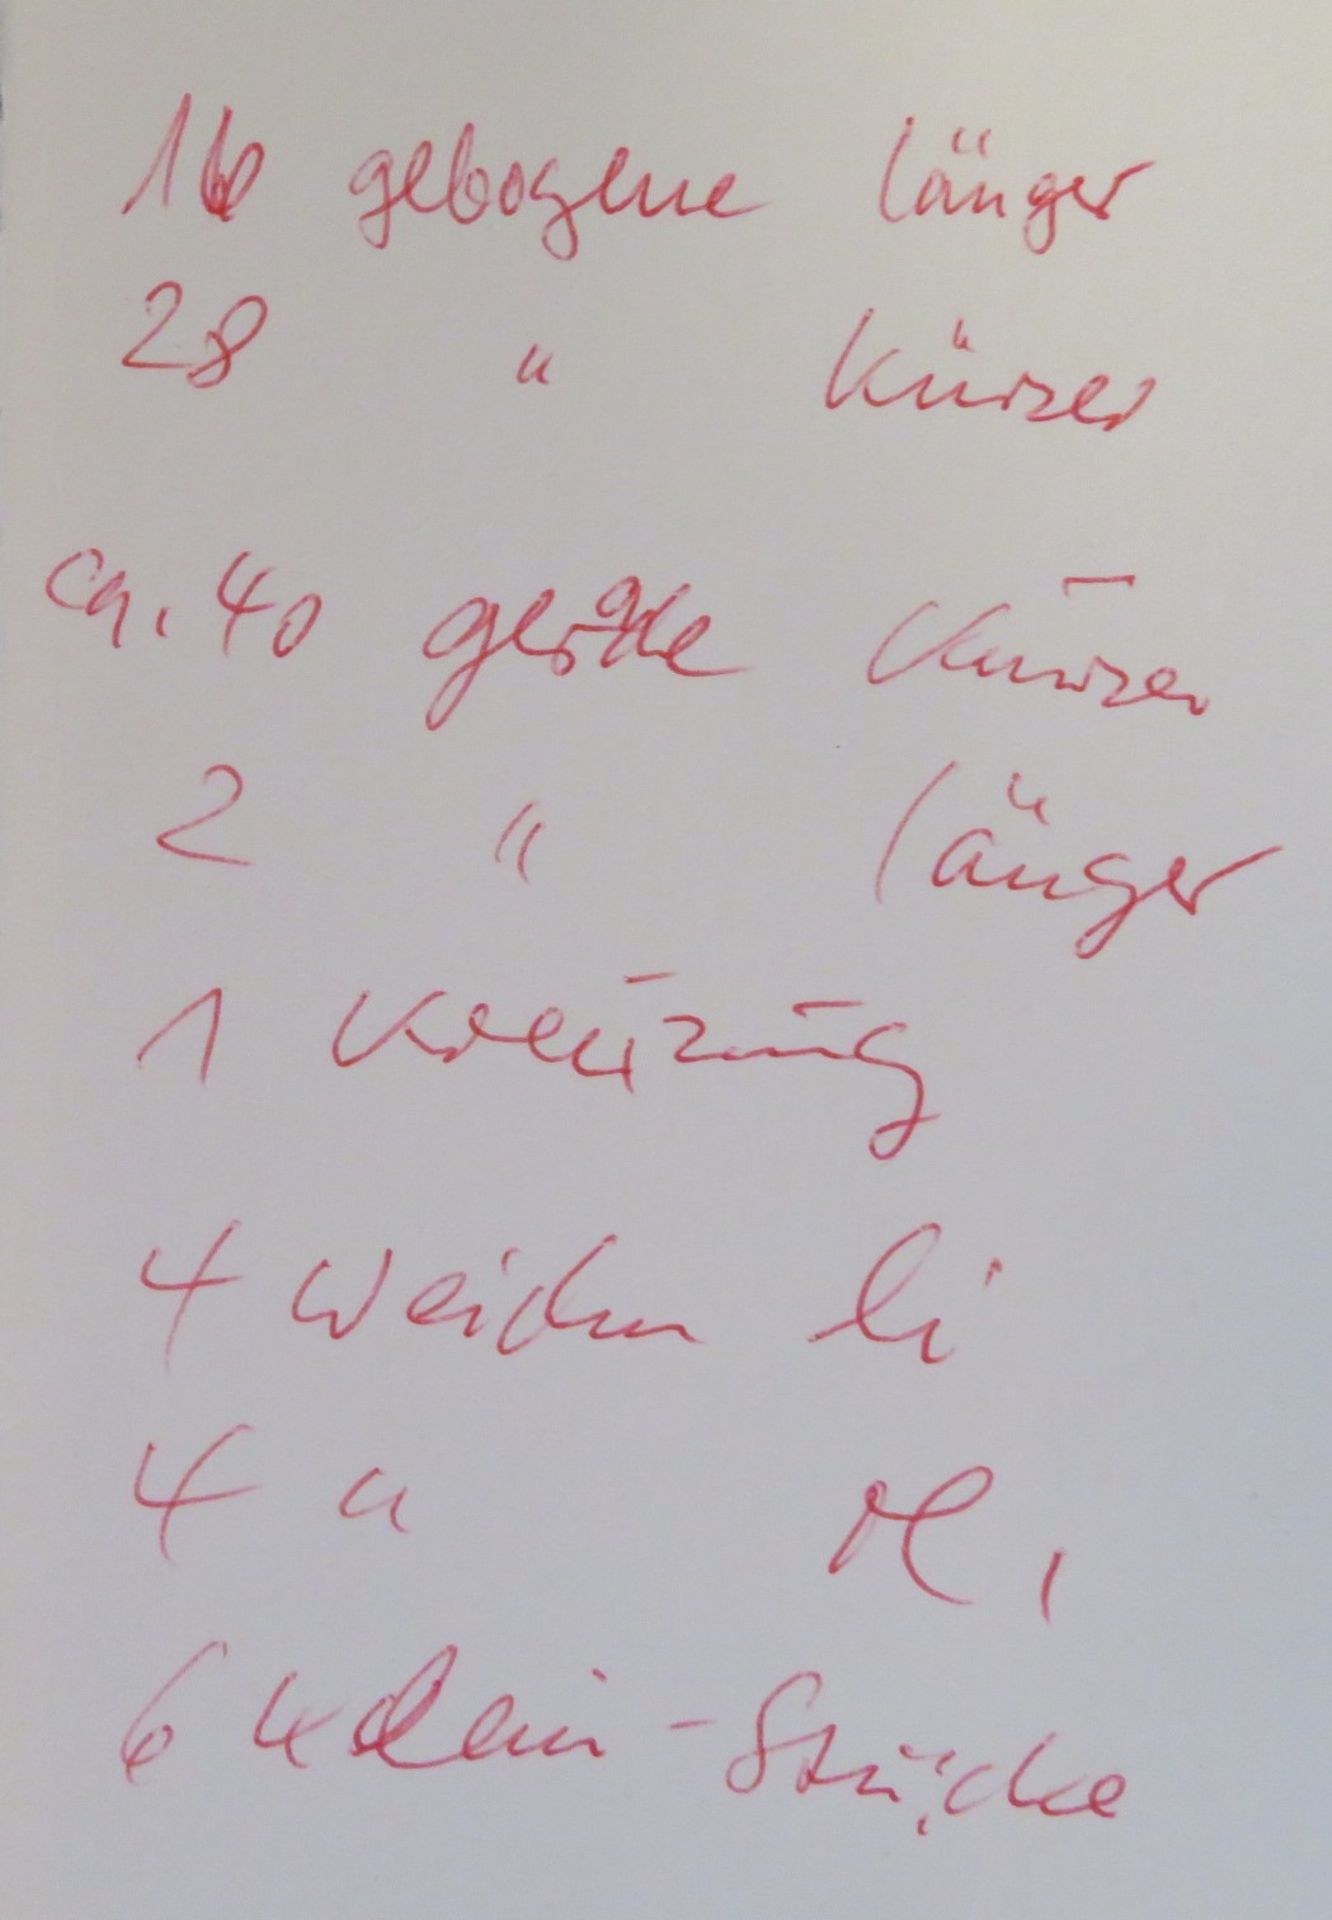 16 gebogene länger
28 " kürzer
ca. 40 gerade kürzer
2 " länger
1 Kreuzung
4 Weichen li
4 " re.
6 Klein-Stücke